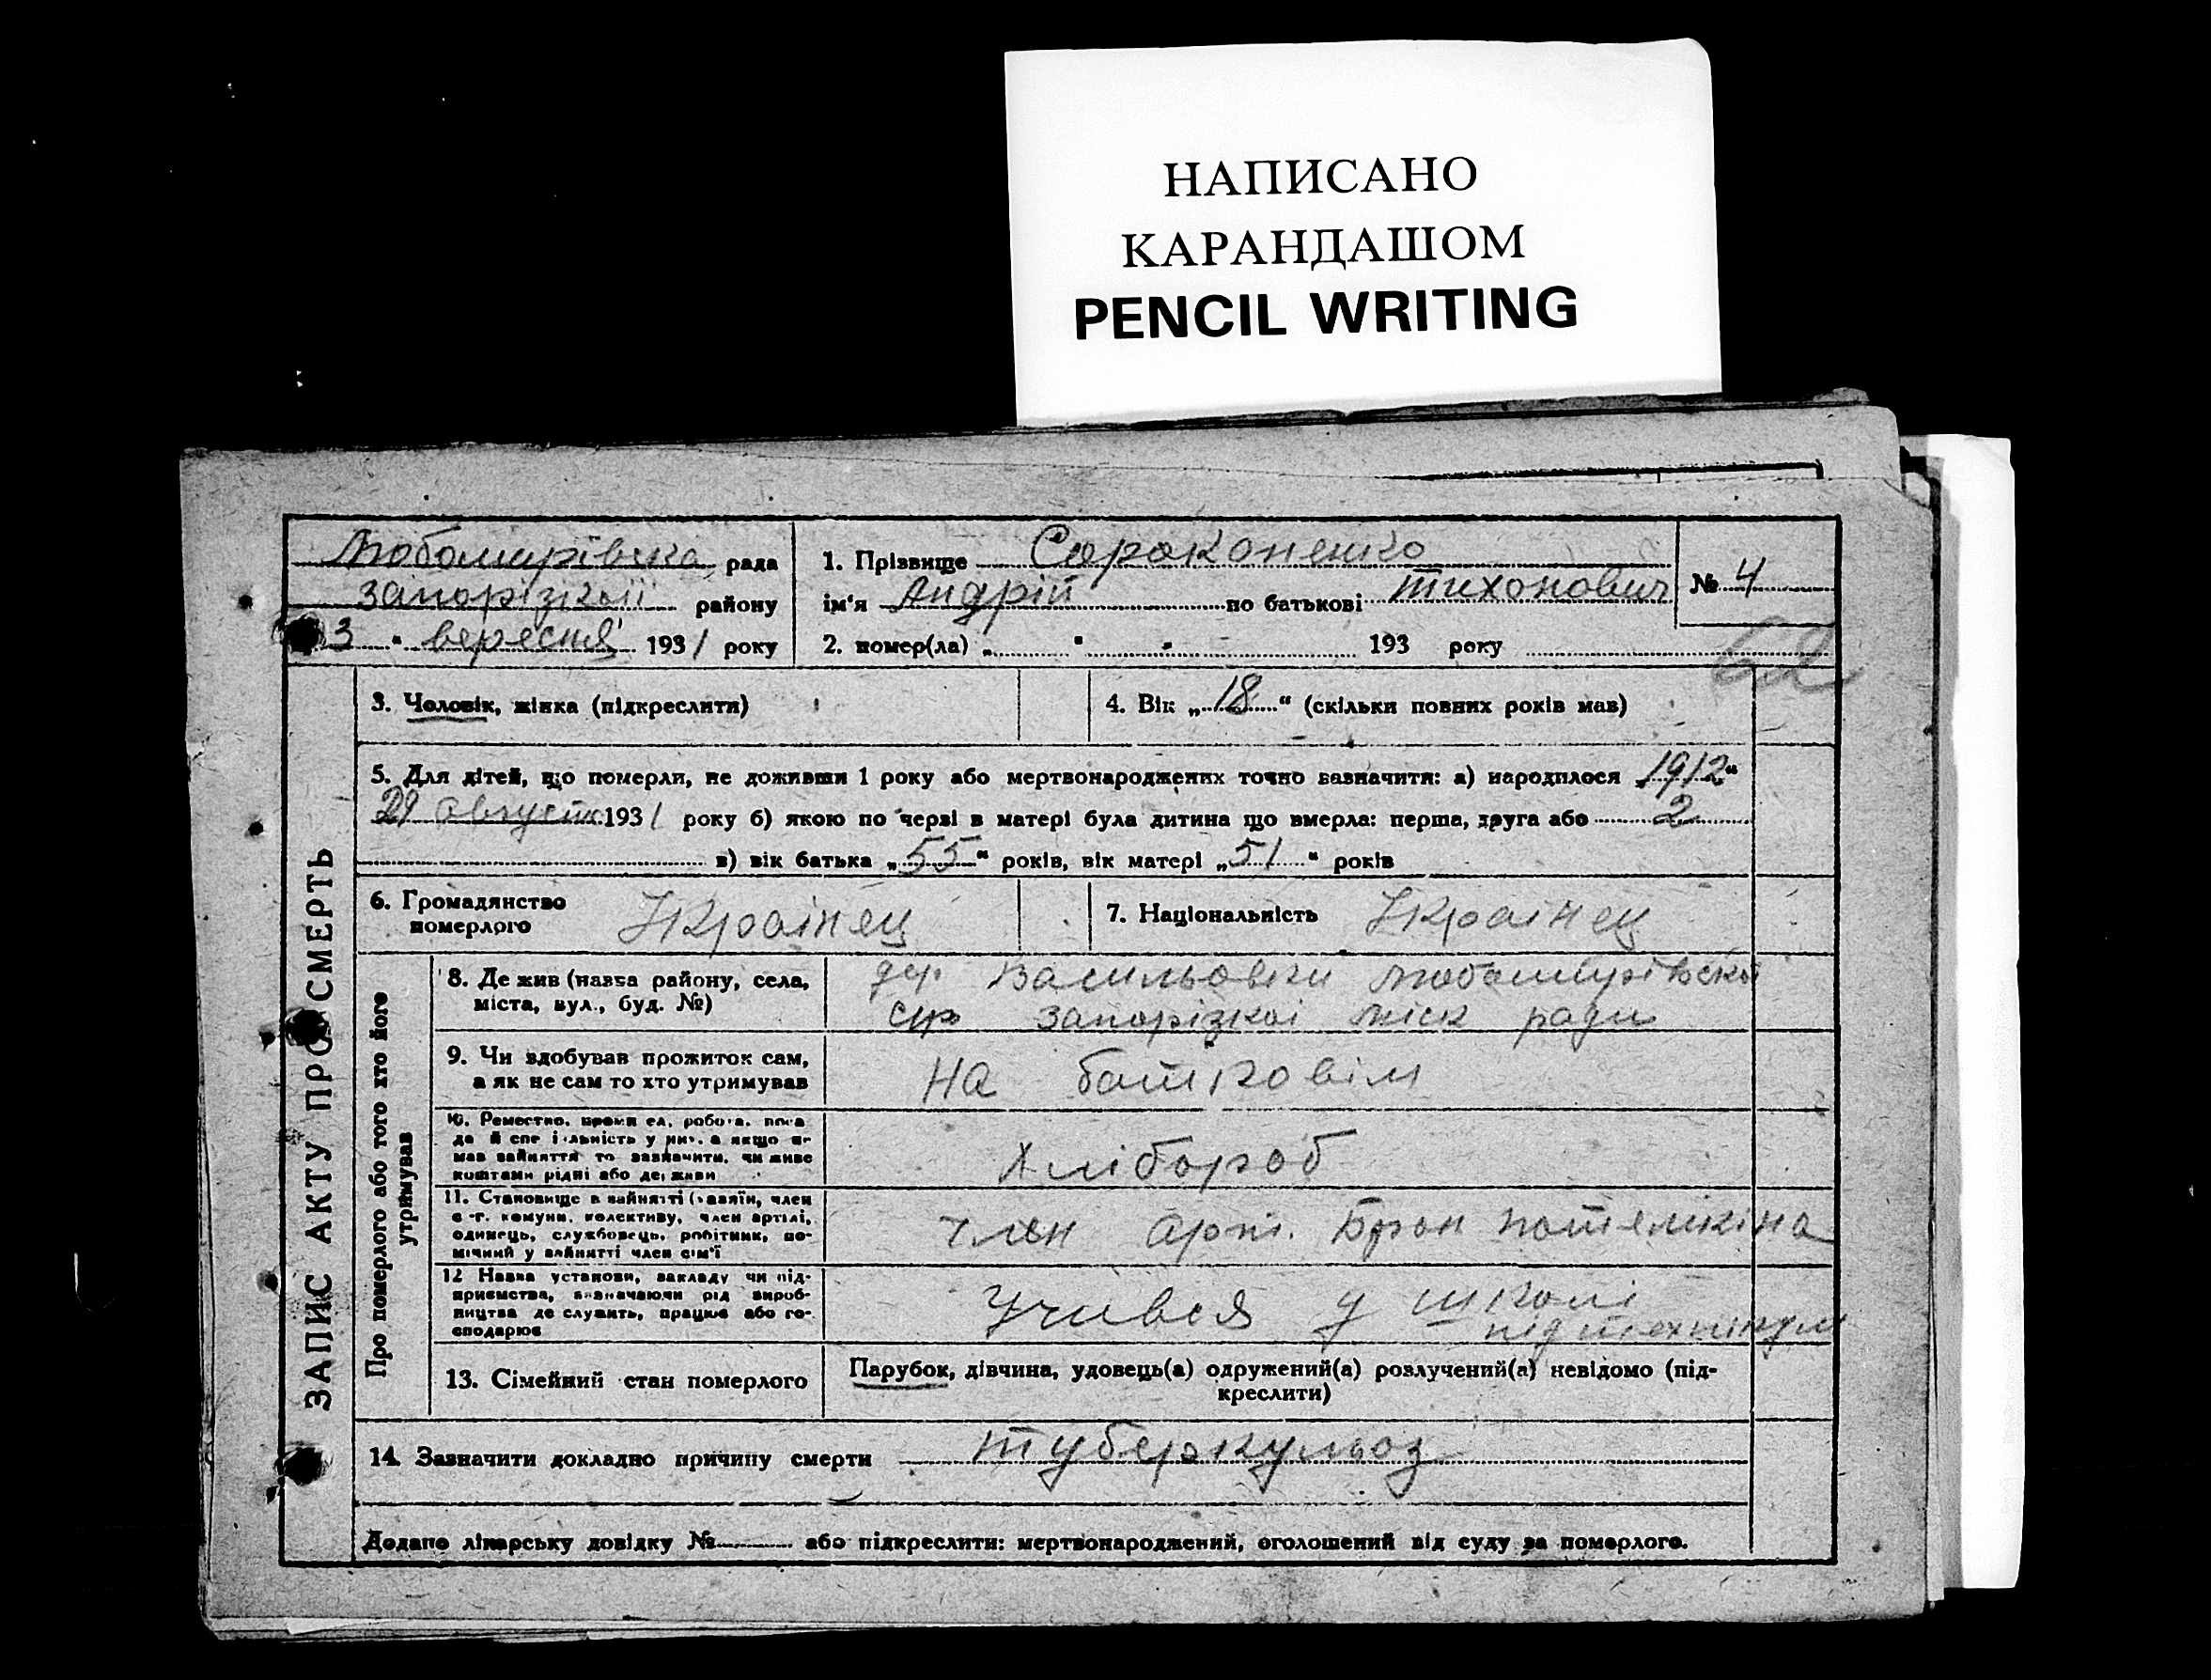 НАПИСАНО
КАРАНДАШОМ
PENCIL WRITING
Любомирівска рада
Запорізкої району
3 " вересня 1931 року
1. Прізвище Сороконенко
ім'я Андрій по батькові Тихонович
№ 4
2. помер(ла) „ " 193 року
ЗАПИС АКТУ ПРО СМЕРТЬ
3. Чоловік, жінка (підкреслити)
4. Вік „18" (скільки повних років мав)
5. Для дітей, що померли, не доживши 1 року або мертвонароджених точно зазначити: а) народилося „1912"
29 августа 1931 року б) якою по черзі в матері була дитина що вмерла: перша, друга або 2
в) вік батька „55" років, вік матері „51" років
6. Громадянство померлого Украінец
7. Національність Украінец
Про померлого або того хто його утримував
8. Де жив (назва району, села, міста, вул., буд. №)
дер Васильовки Любомирівскоі
с/р запорізкоі міск ради
9. Чи здобував прожиток сам, а як не сам то хто утримував
На батьковім
10. Ремество, промисел, робота, посада й спеціяльність у них, а якщо не мав зайняття то зазначити, чи живе коштами рідні або держави
Хлібороб
11. Становище в зайнятті (хазяїн, член с-г. комуни, колективу, член артілі, одинець, службовець, робітник, помічний у зайнятті член сім'ї
Член арт. Брон Потемкіна
12 Назва установи, закладу чи підприємства, зазначаючи рід виробництва де служить, працює або господарює
Учився у школі
підтехнікум
13. Сімейний стан померлого
Парубок, дівчина, удовець(а) одружений(а) розлучений(а) невідомо (підкреслити)
14. Зазначити докладно причину смерти туберкульоз
Додано лікарську довідку № або підкреслити: мертвонароджений, оголошений від суду за померлого.